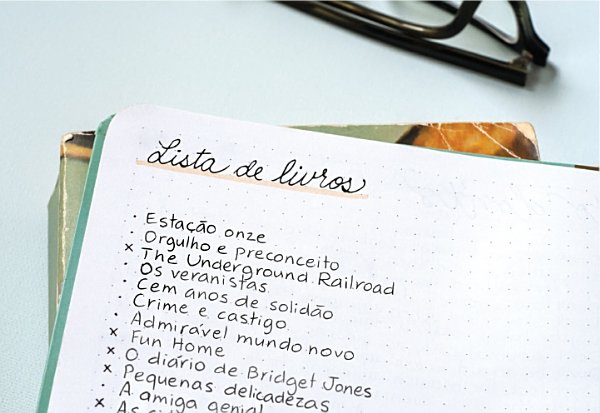 Lista de livros
· Estação onze
· Orgulho e preconceito
x The Underground Railroad
· Os veranistas
· Cem anos de solidão
· Crime e castigo
· Admirável mundo novo
x Fun Home
x O diário de Bridget Jones
x Pequenas delicadezas
· A amiga genial
x As